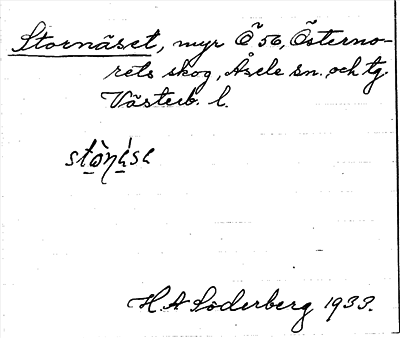 Stornäset, myr Ö 56, Österno-
rets skog, Åsele sn. och tg.
Västerb. l.
H. A Söderberg 1933.